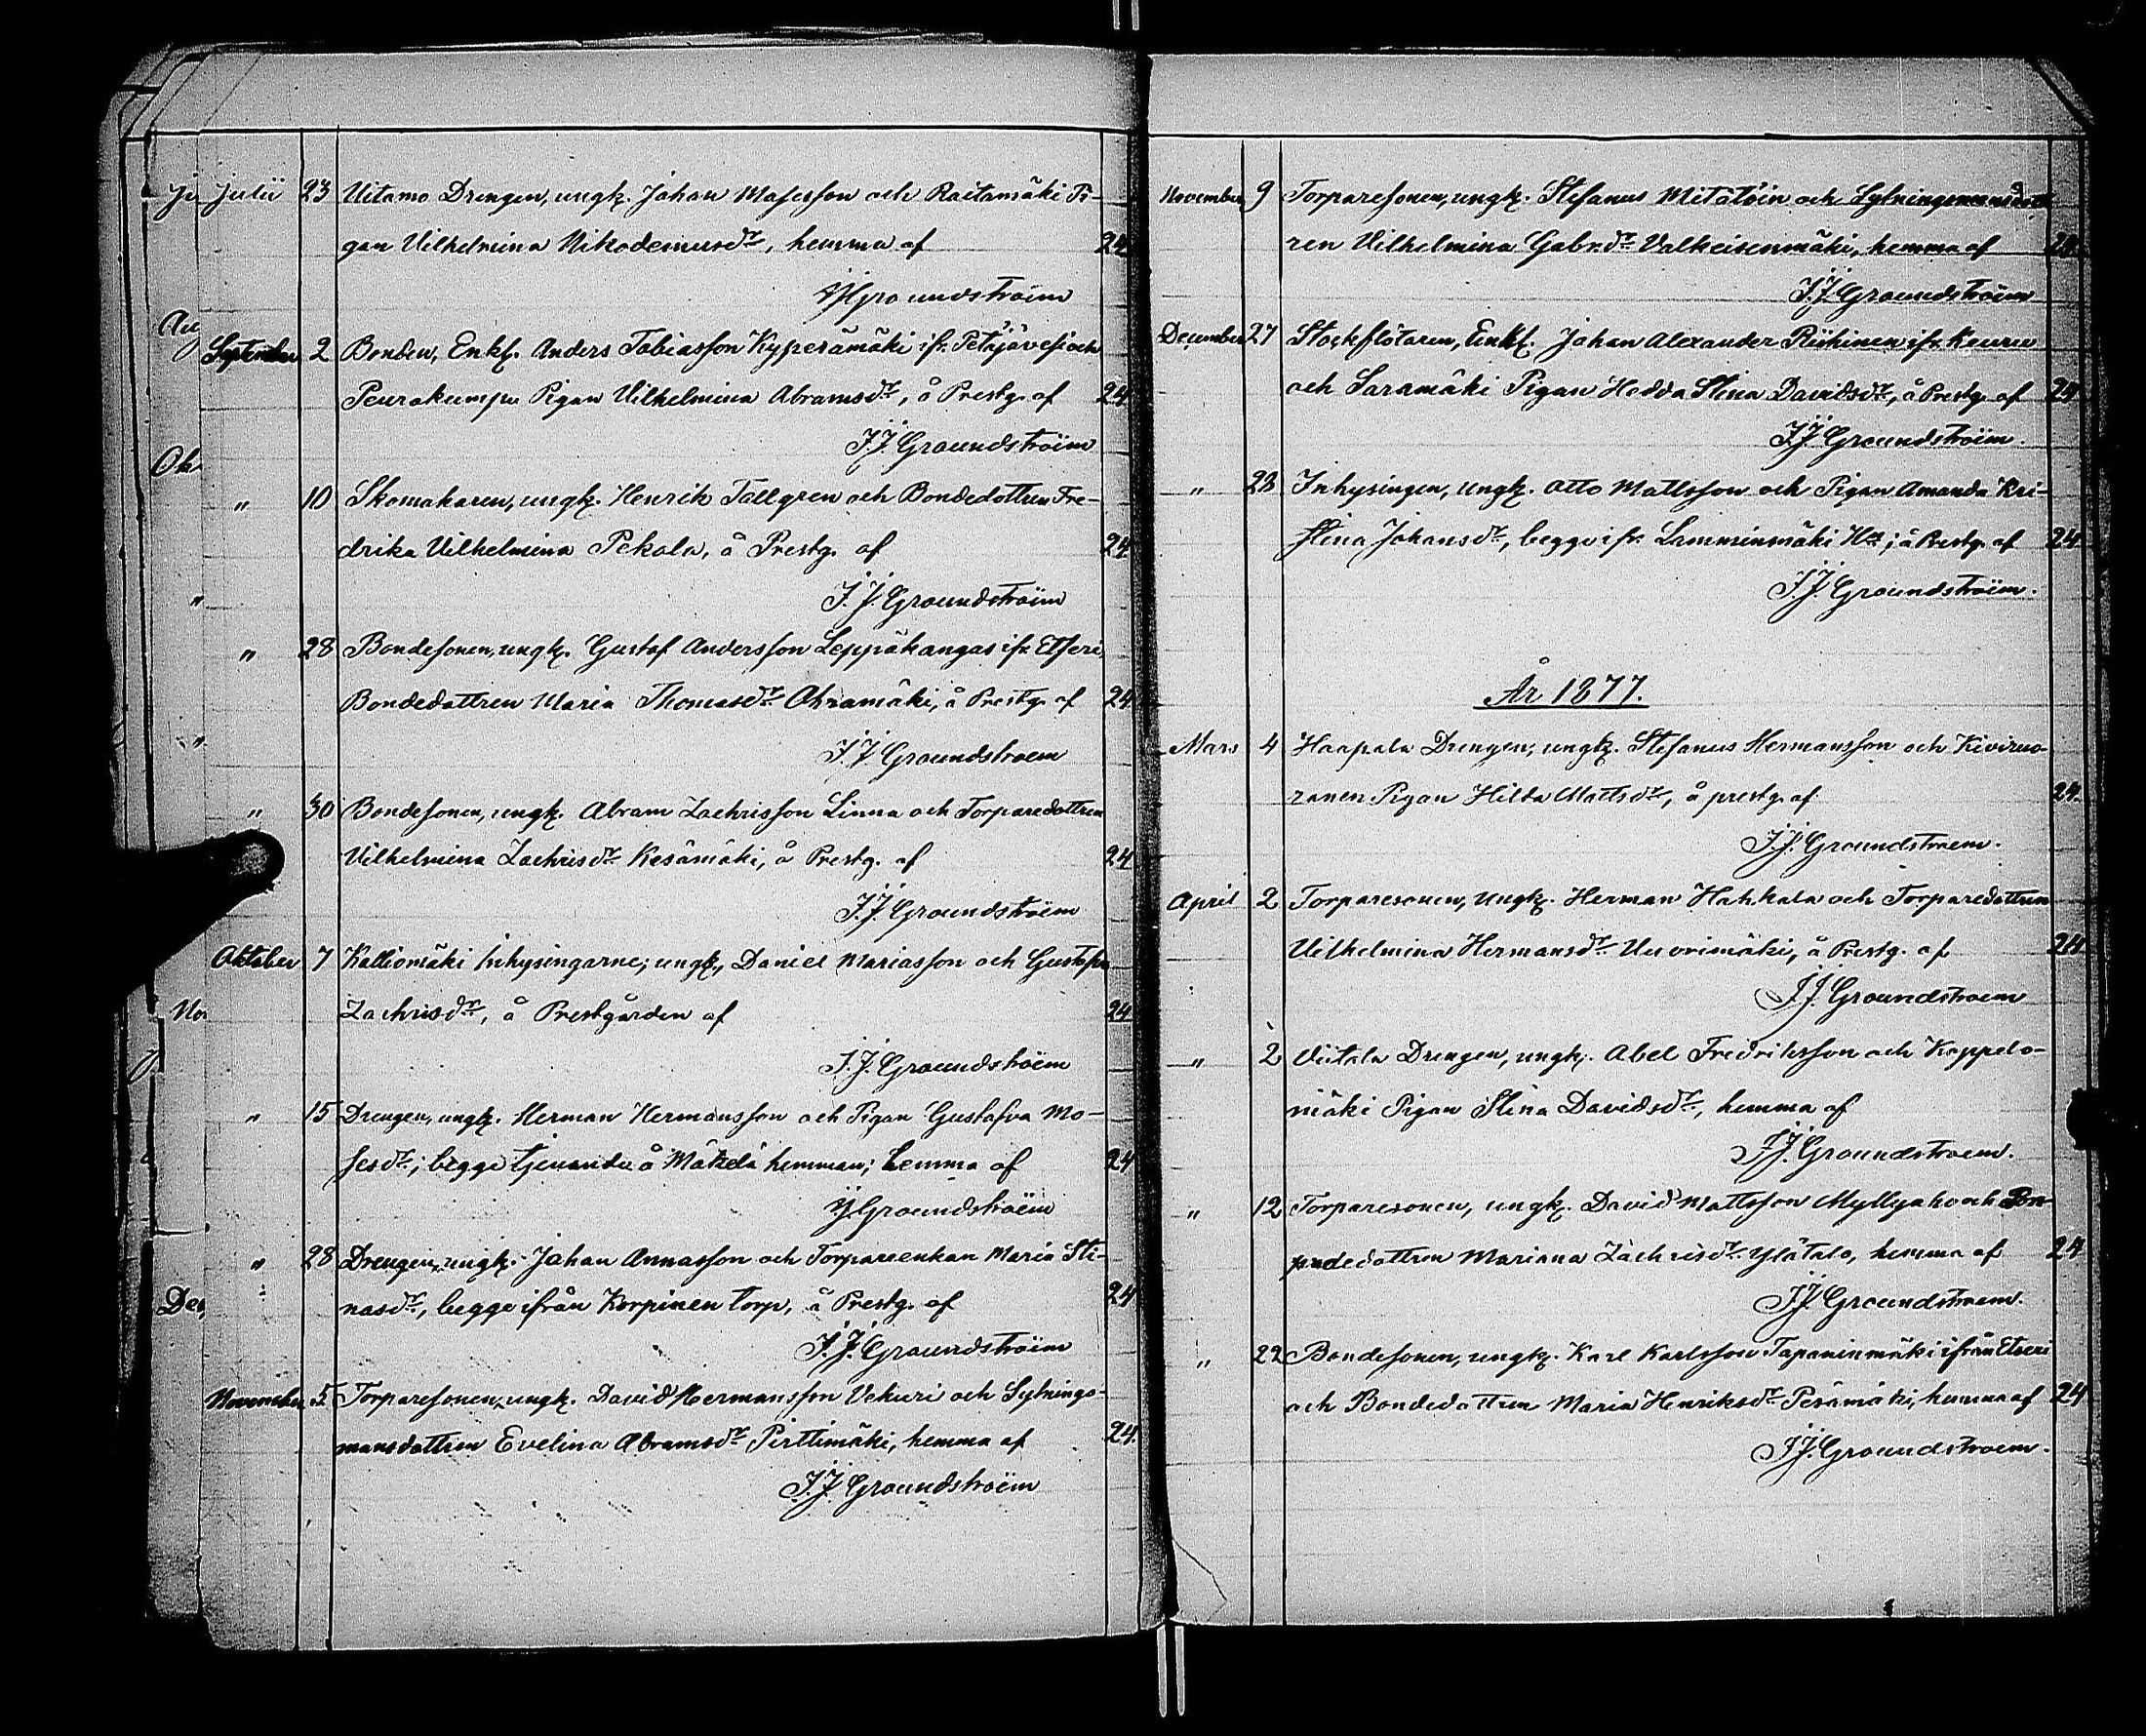 Julii 23 Uitamo Drengen, ungk. Johan Masesson och Raitamäki Pi-
gan Vilhelmina Nikodemusdr, hemma af 24
Groundstroëm
September 2 Bonden, Enkl. Anders Tobiasson Kyperämäki ifr. Petäjävesi och
Peurakumpu Pigan Vilhelmina Abramsdr, å Prestg. af 24
J.J. Groundstroëm
" 10 Skomakaren, ungk. Henrik Tallgren och Bondedottren Fre-
drika Vilhelmina Pekola, å Prestg. af 24
J.J. Groundstroëm
" 28 Bondesonen, ungk. Gustaf Andersson Leppäkangas ifr. Etseri,
Bondedottren Maria Thomasdr Ohramäki, å Prestg. af 24
J.J. Groundstroem
" 30 Bondesonen, ungk. Abram Zachrisson Linna och Torparedottren
Vilhelmina Zachrisdr Kesämäki, å Prestg. af 24
J.J. Groundstroëm
Oktober 7 Kalliomäki Inhysingarne; ungk., Daniel Mariasson och Gustafva
Zachrisdr, å Prestgården af 24
J.J. Groundstroëm
" 15 Drengen, ungk. Herman Hermansson och Pigan Gustafva Mo-
sesdr; begge tjenande å Mäkelä hemman; hemma af 24
J.J. Groundstroëm
" 28 Drengen, ungk. Johan Annasson och Torpareenkan Maria Sti-
nasdr, begge ifrån Korpinen torp, å Prestg. af 24
J.J. Groundstroëm
November 5 Torparesonen, ungk. David Hermansson Vekuri och Sytnings-
mansdottren Evelina Abramsdr Pirttimäki, hemma af 24.
J.J. Groundstroëm
November 9 Torparesonen, ungk. Stefanus Mitätöin och Sytningsmansdott
ren Vilhelmina Gabr.dr Valkeisenmäki, hemma af 24
J.J. Groundstroëm
December 27 Stockflötaren, Enkl. Johan Alexander Riihinen ifr. Keuru
och Saramäki Pigan Hedda Stina Davidsdr, å Prestg. af 24
J.J. Groundstroëm.
" 28 Inhysingen, Ungk. Otto Mattsson och Pigan Amanda Kri-
stina Johansdr, begge ifr. Lamminmäki Hn; å Prestg. af 24
J.J. Groundstroëm.
År 1877.
Mars 4 Haapala Drengen, ungk. Stefanus Hermansson och Kiviruo-
ranen Pigan Hilda Mattsdr, å prestg. af 24.
J.J. Groundstroem.
April 2 Torparesonen, Ungk. Herman Hahkala och Torparedottren
Vilhelmina Hermansdr Vuorimäki, å Prestg. af 24
J.J. Groundstroem
" 2 Viitala Drengen, ungk. Abel Fredriksson och Koppelo-
mäki Pigan Stina Davidsdr, hemma af
J.J. Groundstroem.
" 12 Torparesonen, ungk. David Mattsson Myllyaho och
dedottren Mariana Zachrisdr Ylätalo, hemma af 24
J.J. Groundstroem.
" 22 Bondesonen, ungk. Karl Karlsson Tapaninmäki ifrån Etseri
och Bondedottren Maria Henriksdr Perämäki, hemma af 24
J.J. Groundstroem.